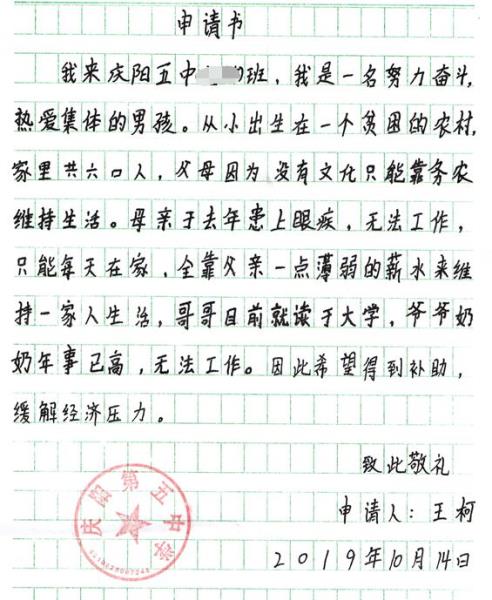 申请书
我来庆阳五中班，我是一名努力奋斗，
热爱集体的男孩。从小出生在一个贫困的农村，
家里共六口人，父母因为没有文化只能靠务农
维持生活。母亲于去年患上眼疾，无法工作，
只能每天在家，全靠父亲一点薄弱的薪水来维
持一家人生活，哥哥目前就读于大学，爷爷奶
奶年事已高，无法工作。因此希望得到补助，
缓解经济压力。
致此敬礼
申请人：王柯
2019年10月14日
庆阳第五中学